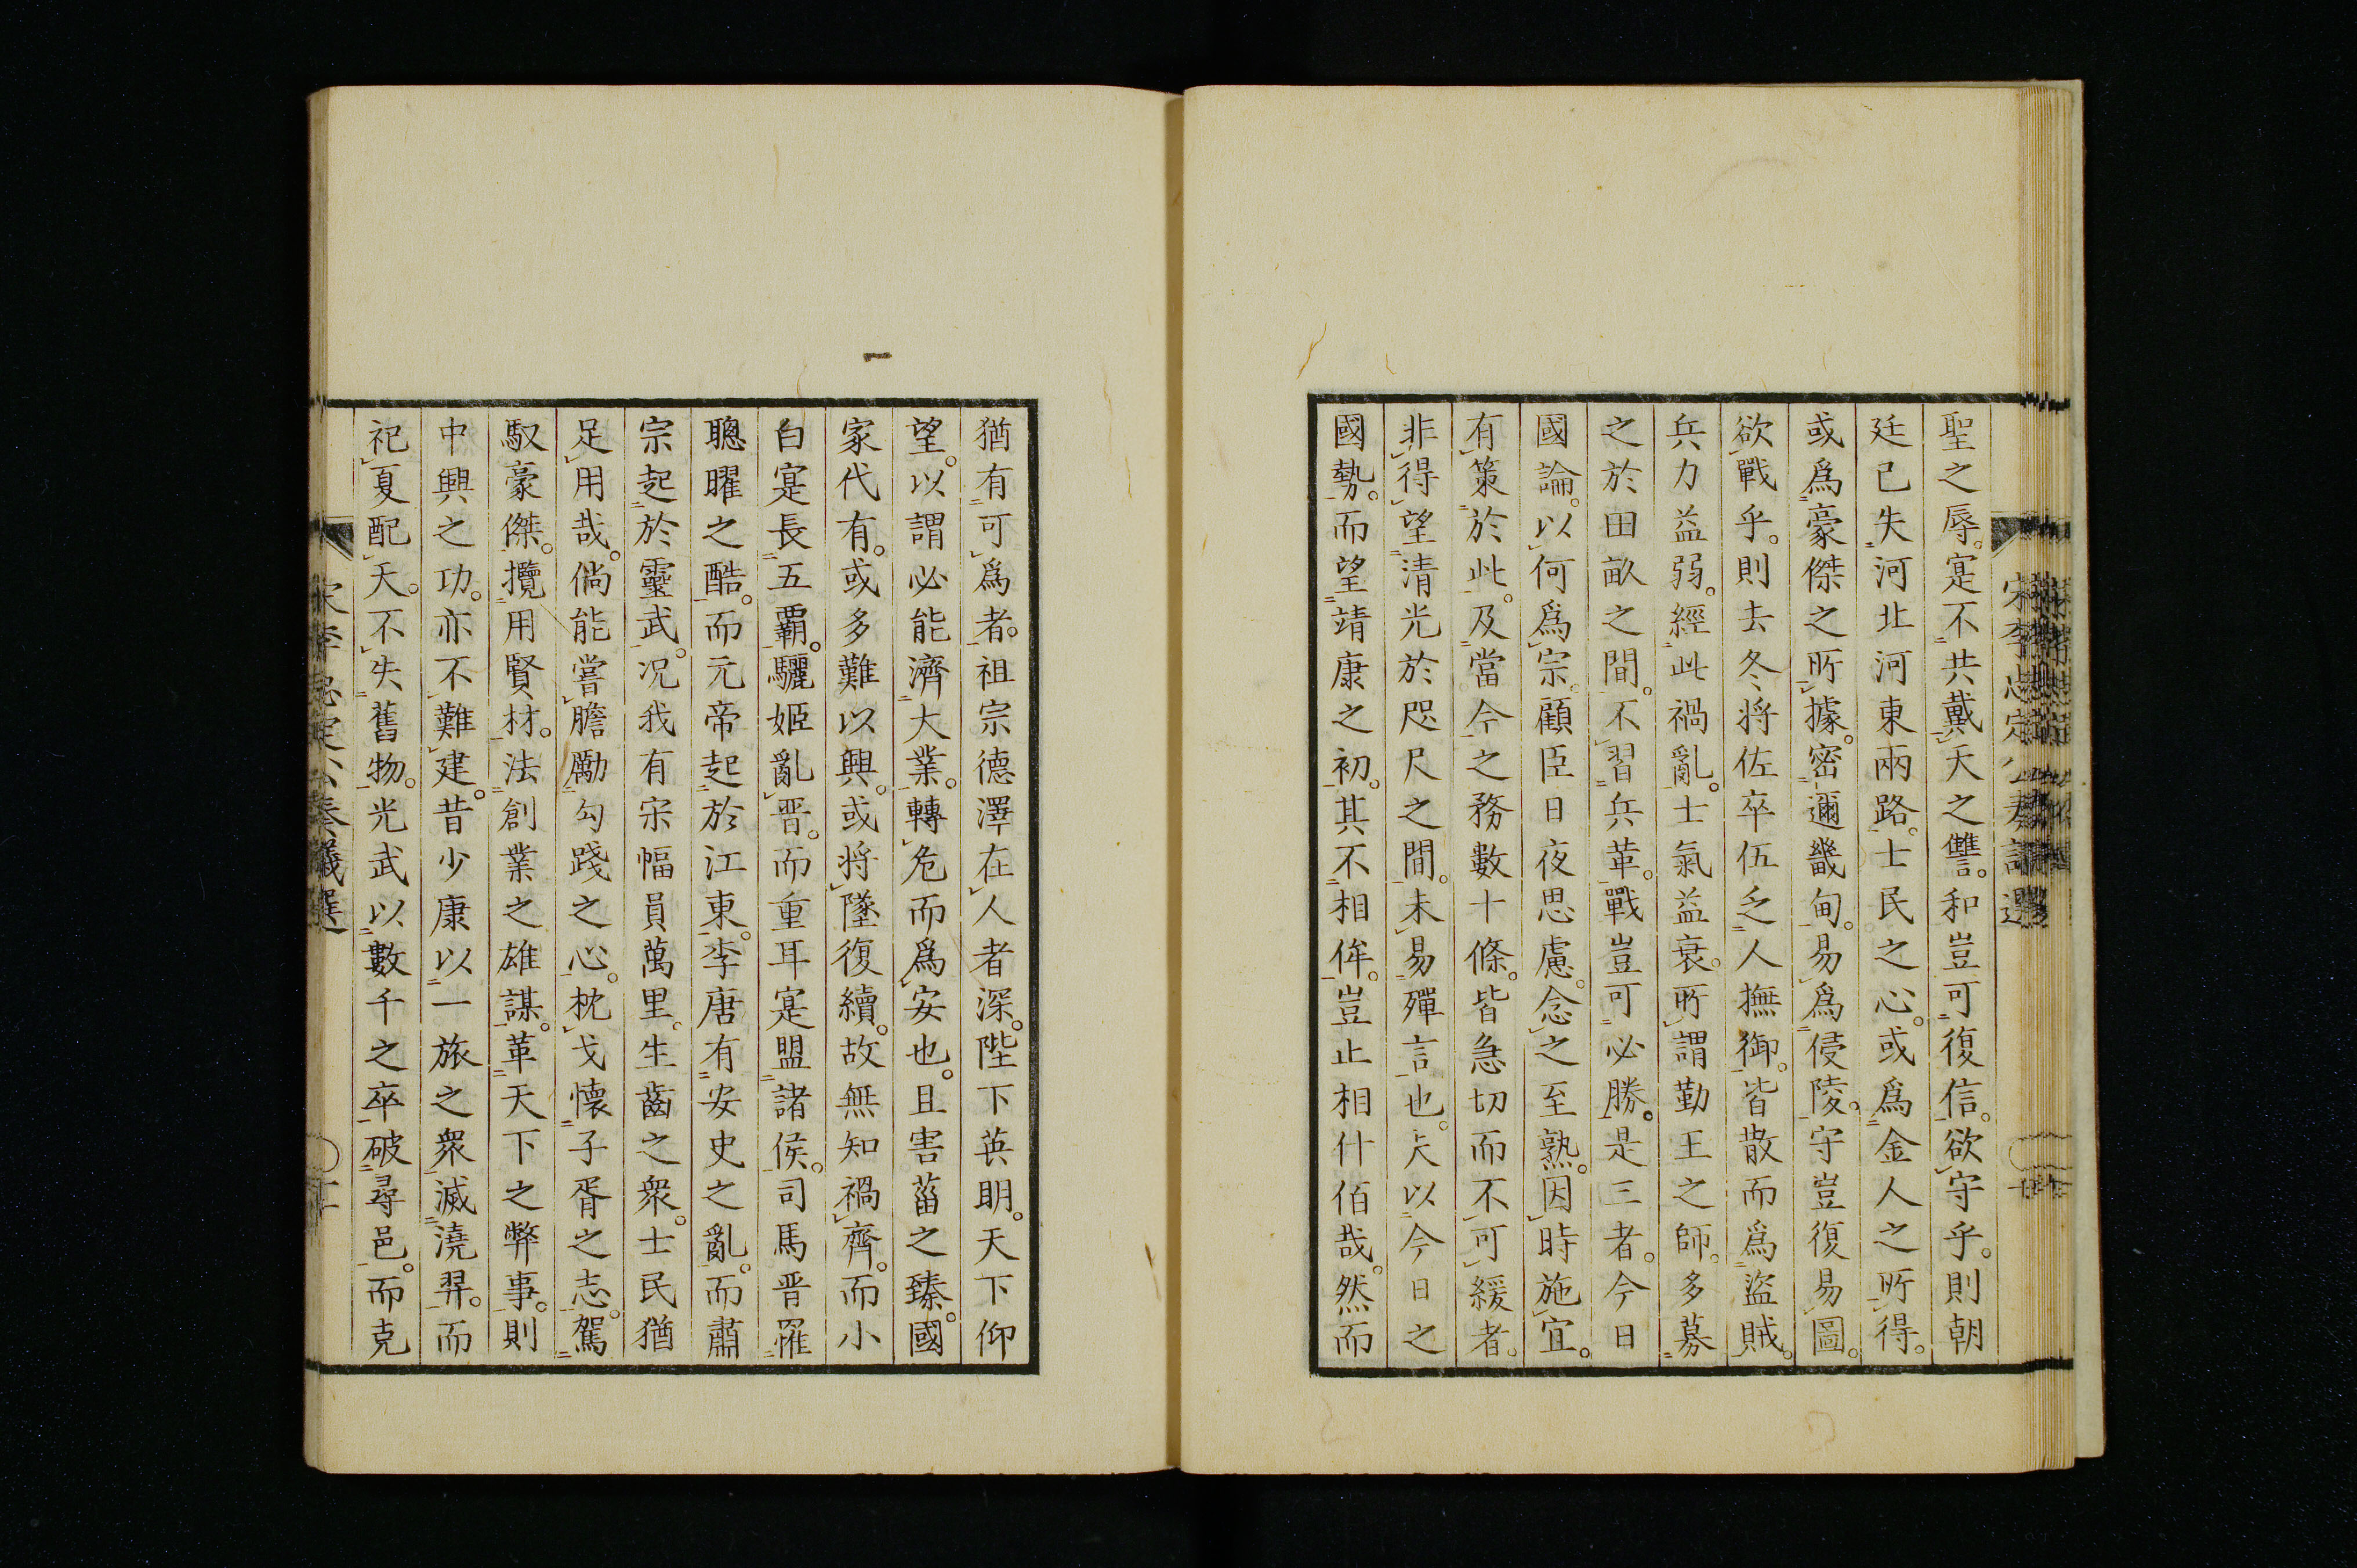 聖之辱。寔不共戴天之讐。和豈可復信。欲守乎。則朝
廷已失河北河東兩路。士民之心。或爲金人之所得。
或爲豪傑之所據。密邇畿甸。易爲侵陵。守豈復易圖。
欲戰乎。則去冬將佐卒伍乏人撫御。皆散而爲盜賊。
兵力益弱。經此禍亂。士氣益衰。所謂勤王之師。多募
之於田畝之間。不習兵革。戰豈可必勝。是三者。今日
國論。以何爲宗。顧臣日夜思慮。念之至熟。因時施宜。
有策於此。及當今之務數十條。皆急切而不可緩者。
非得望清光於咫尺之間。未易殫言也。夫以今日之
國勢。而望靖康之初。其不相侔。豈止相什伯哉。然而
猶有可爲者。祖宗德澤在人者深。陛下英明。天下仰
望。以謂必能濟大業。轉危而爲安也。且害菑之臻。國
家代有。或多難以興。或將墜復續。故無知禍齊。而小
白寔長五霸。驪姬亂晉。而重耳寔盟諸侯。司馬晉罹
聰曜之酷。而元帝起於江東。李唐有安史之亂。而肅
宗起於靈武。况我有宋幅員萬里。生齒之衆。士民猶
足用哉。倘能嘗膽勵勾踐之心。枕戈懷子胥之志。駕
馭豪傑。攬用賢材。法創業之雄謀。革天下之弊事。則
中興之功。亦不難建。昔少康以一旅之衆滅澆羿。而
祀夏配天。不失舊物。光武以數千之卒破尋邑。而克
宋李忠定公奏議選